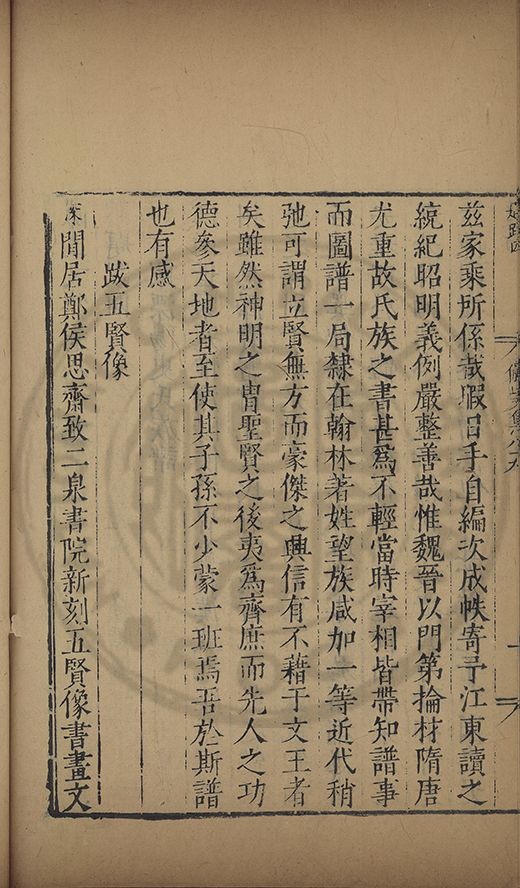 茲家乘所係哉暇日手自編次成帙寄予江東讀之
統紀昭明義例嚴整善哉惟魏晉以門第掄材隋唐
尤重故氏族之書甚爲不輕當時宰相皆帶知譜事
而圖譜一局隸在翰林著姓望族咸加一等近代稍
弛可謂立賢無方而豪傑之興信有不藉于文王者
矣雖然神明之胄聖賢之後夷爲齊庶而先人之功
德參天地者至使其子孫不少蒙一班焉吾於斯譜
也有感
跋五賢像
深閒居鄭侯思齋致二泉書院新刻五賢像書畫文